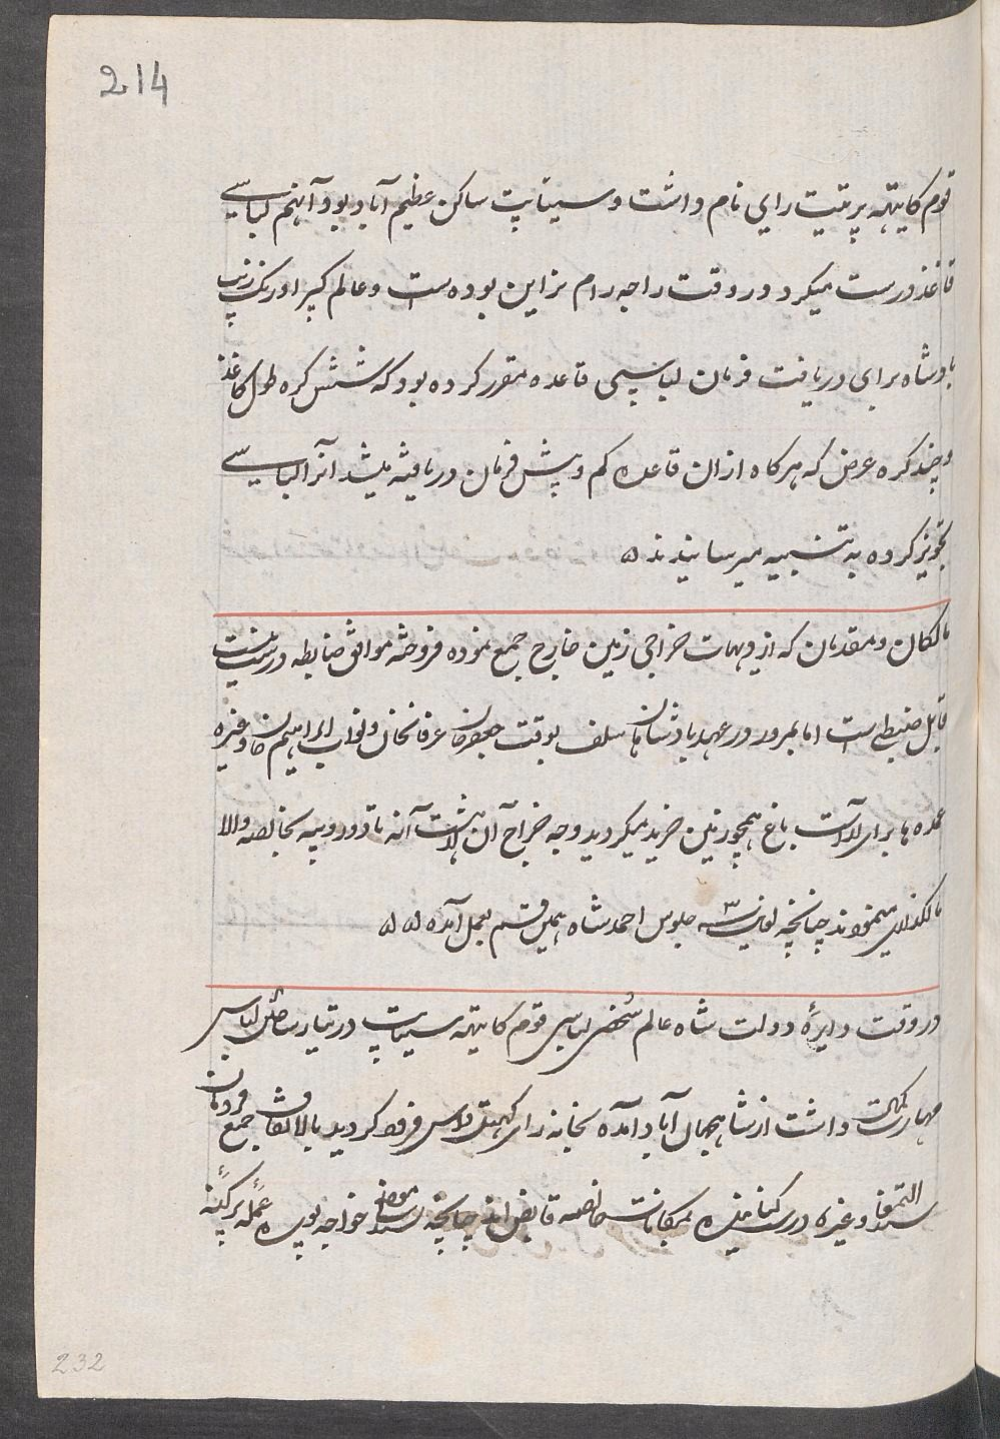 214
قوم کایتهه پرتیت رای نام داشت و سیتاپت ساکن عظیم آباد بود آنهم لباسی
قاغذ درست میکرد در وقت راجه رام نراین بوده است و عالم گیر اورنگ زیب
بادشاه برای دریافت فرمان لباسی قاعده مقرر کرده بود که شش کره طول کاغذ
و چند کره عرض که هرکاه ازان قاعده کم و بیش فرمان دریافته میشد آنرا لباسی
تجویز کرده به تنبیه میرسانیدند ۵
مالکان و مقدمان که از دیهات خراجی زمین خارج جمع نموده فروخته موافق ضابطه درست نیست
قابل ضبطی است اما بمرور در عهد بادشاهان سلف بوقت جعفر خان عرفانخان و نواب ابراهیم خان وغیره
عمده ها برای باغ همچو زمین خرید میکردید وجه خراج آن هشت آنه تا دو روپیه بخالصه والا
مالکذاری مینمودند چنانچه سنه ۳ جلوس احمد شاه همین قسم بعمل آمده ۵ ۵
در وقت دایرهٔ دولت شاه عالم شخصی لباسی قوم کایتهه سیتاپت در تیاری لباسی
مهارت کمال داشت از شاهجهان آباد آمده بخانه رای فروکش کردید بالاتفاق جمع فرمان
التمغا وغیره درست بمکانات خالصه قابض اند چنانچه سند موضع خواجه پوره عمله پرکنه
232